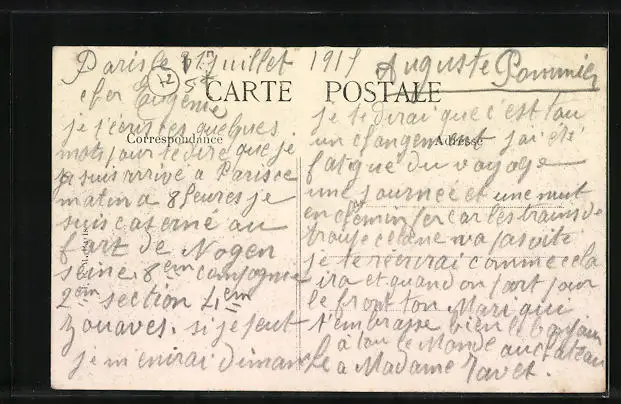 Paris le Juillet 1915 Auguste Pommier
cher Eugénie
CARTE POSTALE
Correspondance
Adresse
je t'écris ces quelques
mots pour te dire que je
suis arrivé a Paris ce
matin a 8 heures je
suis caserné au
fort de Nogen
seine 8em compagnie
2em section 4em
Zouaves. si je peut
je m'enirai dimanche
je te dirai que c'est tou
un changement j'ai été
fatigué du voyage
une journée et une nuit
en chemin fer car les trains de
troupe cela ne va pas vite
je te récrirai comme cela
ira et quand on part pour
le front ton Mari qui
t'embrasse bien le bonjour
a tou le Monde au chateau
a Madame